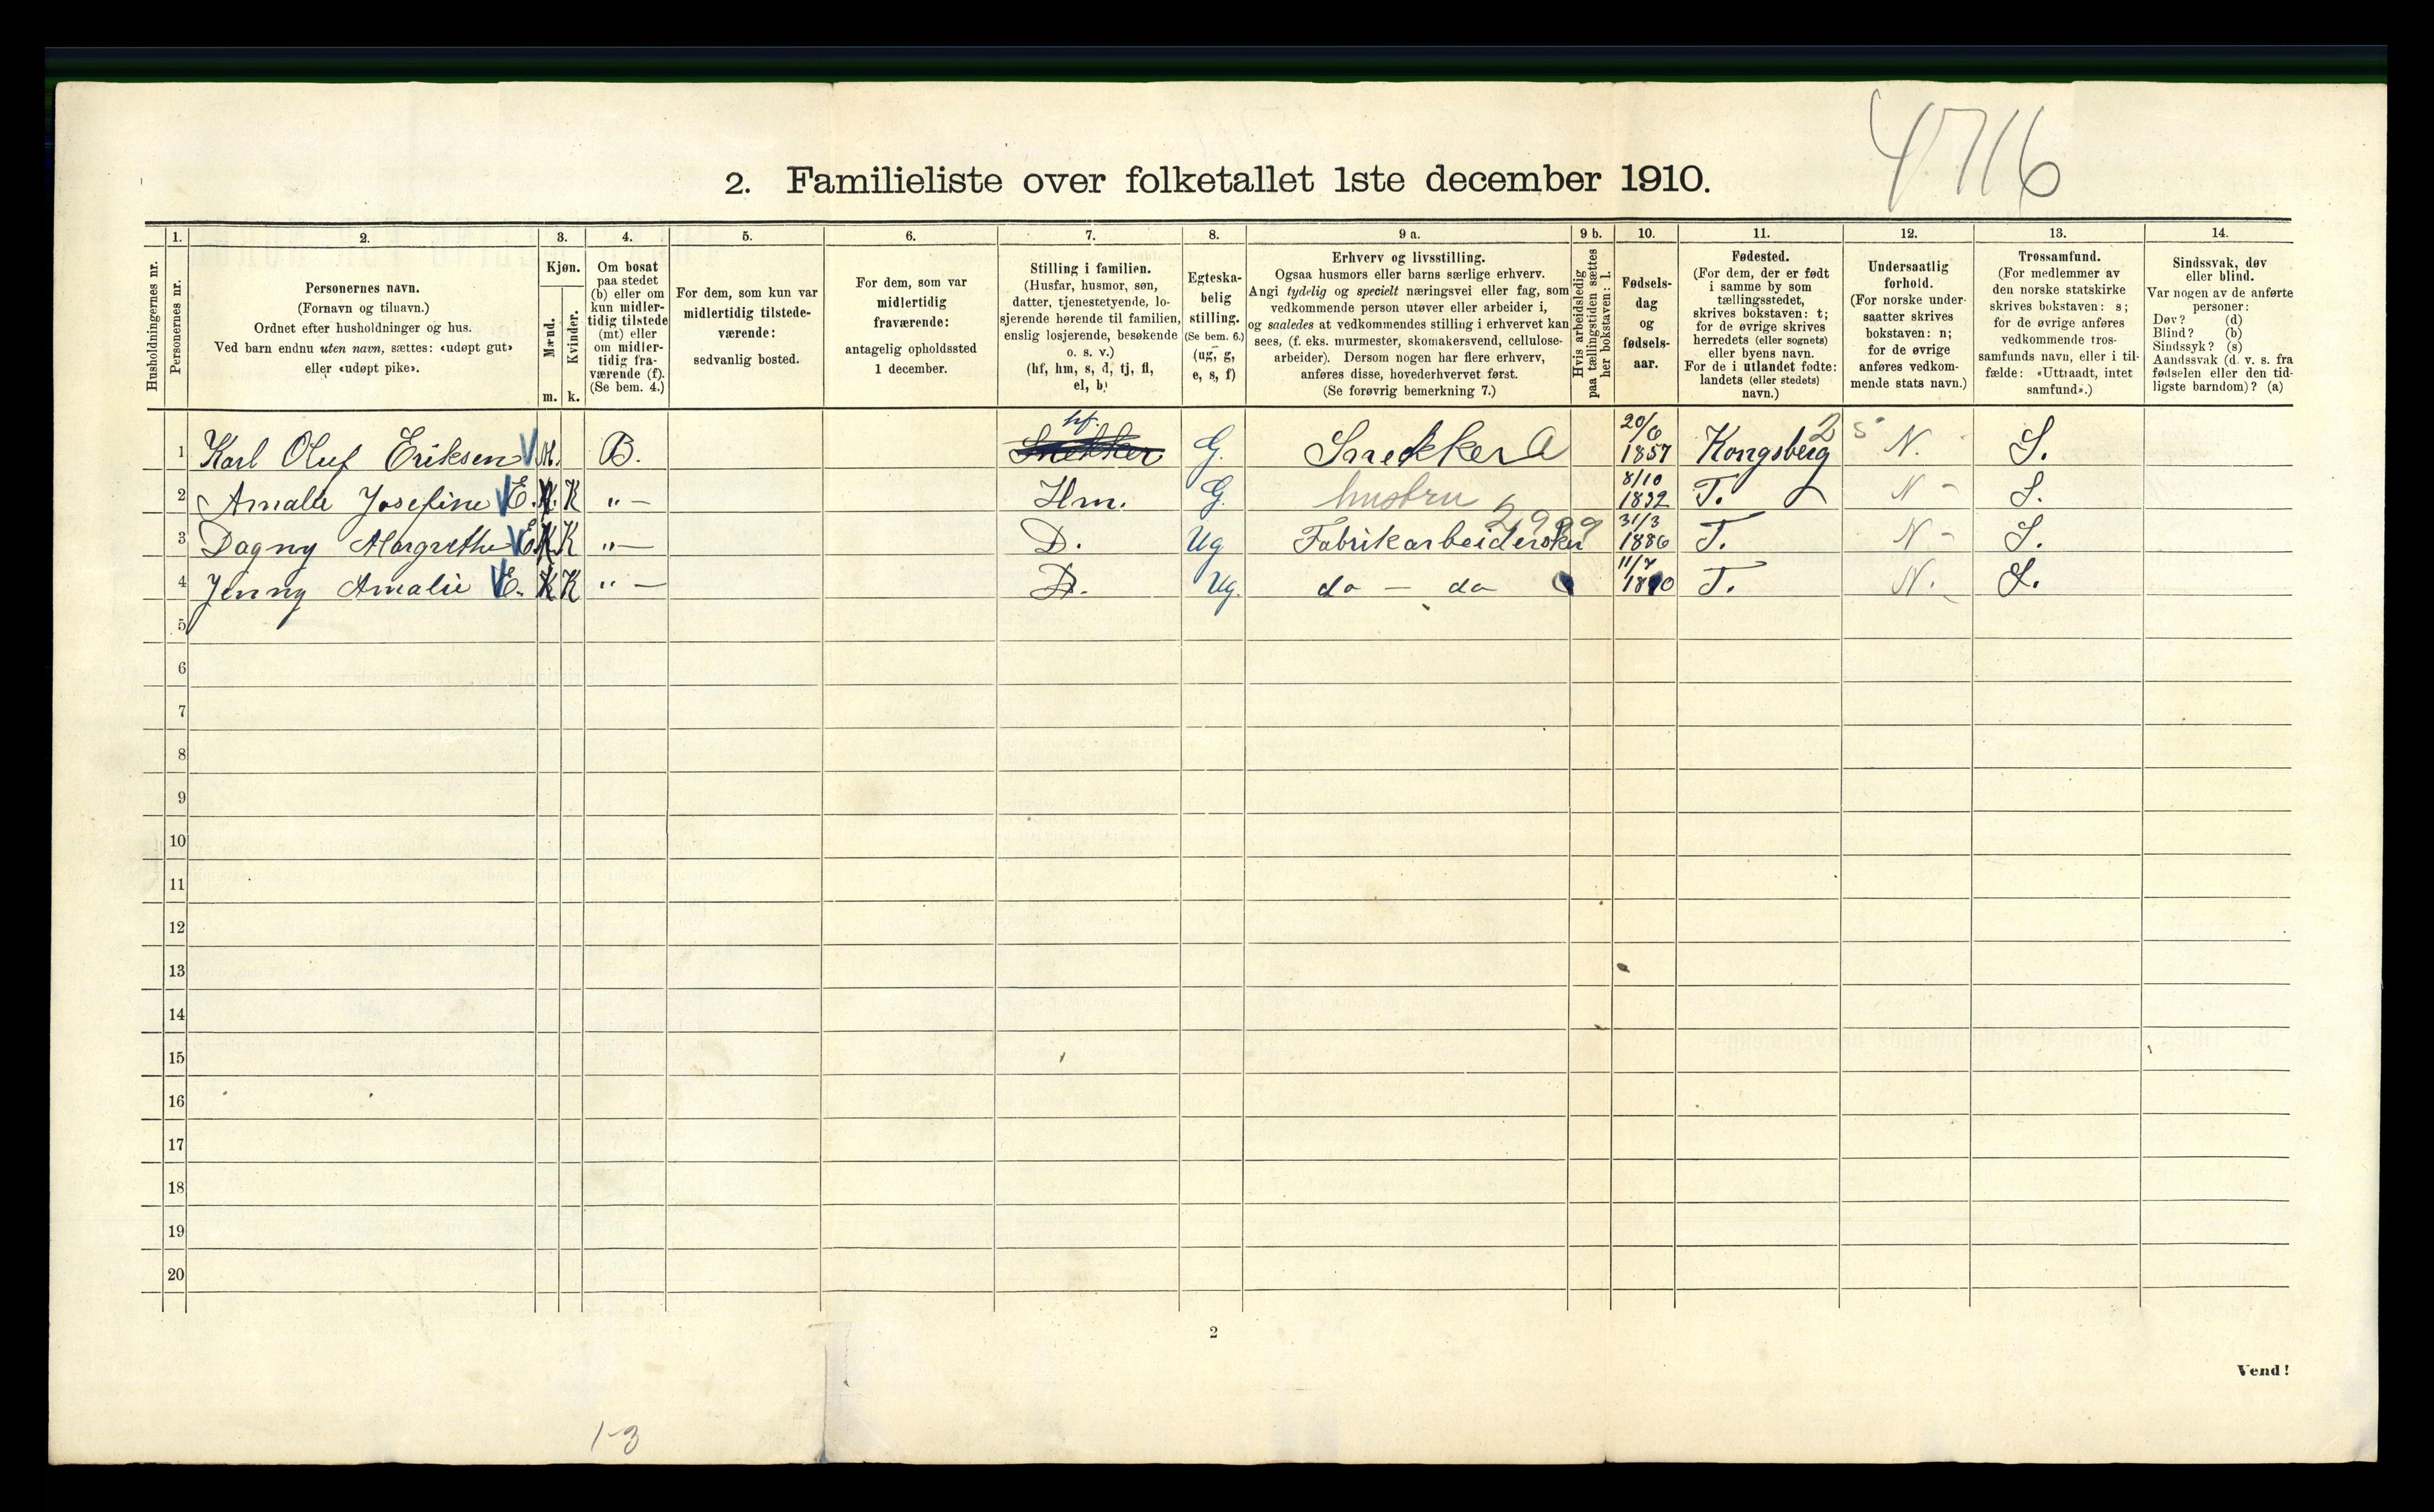 4716
2. Familieliste over folketallet 1ste december 1910.
1. 2. 3. 4. 5. 6. 7. 8. 9 a. 9 b. 10. 11. 12. 13. 14.
Husholdningernes nr.
Personernes nr.
Personernes navn.
(Fornavn og tilnavn.)
Ordnet efter husholdninger og hus.
Ved barn endnu uten navn, sættes: «udøpt gut»
eller «udøpt pike».
Kjøn.
Mænd.
Kvinder.
m. k.
Om bosat
paa stedet
(b) eller om
kun midler-
tidig tilstede
(mt) eller
om midler-
tidig fra-
værende (f).
(Se bem. 4.)
For dem, som kun var
midlertidig tilstede-
værende:
sedvanlig bosted.
For dem, som var
midlertidig
fraværende:
antagelig opholdssted
1 december.
Stilling i familien.
(Husfar, husmor, søn,
datter, tjenestetyende, lo-
sjerende hørende til familien,
enslig losjerende, besøkende
o. s. v.)
(hf, hm, s, d, tj, fl,
el, b)
Egteska-
belig
stilling.
(Se bem. 6.)
(ug, g,
e, s, f)
Erhverv og livsstilling.
Ogsaa husmors eller barns særlige erhverv.
Angi tydelig og specielt næringsvei eller fag, som
vedkommende person utøver eller arbeider i,
og saaledes at vedkommendes stilling i erhvervet kan
sees, (f. eks. murmester, skomakersvend, cellulose-
arbeider). Dersom nogen har flere erhverv,
anføres disse, hovederhvervet først.
(Se forøvrig bemerkning 7.)
Hvis arbeidsledig
paa tællingstiden sættes
her bokstaven: l.
Fødsels-
dag
og
fødsels-
aar.
Fødested.
(For dem, der er født
i samme by som
tællingsstedet,
skrives bokstaven: t;
for de øvrige skrives
herredets (eller sognets)
eller byens navn.
For de i utlandet fødte:
landets (eller stedets)
navn.)
Undersaatlig
forhold.
(For norske under-
saatter skrives
bokstaven: n;
for de øvrige
anføres vedkom-
mende stats navn.)
Trossamfund.
(For medlemmer av
den norske statskirke
skrives bokstaven: s;
for de øvrige anføres
vedkommende tros-
samfunds navn, eller i til-
fælde: «Uttraadt, intet
samfund».)
Sindssvak, døv
eller blind.
Var nogen av de anførte
personer:
Døv? (d)
Blind? (b)
Sindssyk? (s)
Aandssvak (d. v. s. fra
fødselen eller den tid-
ligste barndom)? (a)
1 Karl Oluf Eriksen M. B. Snekker hf. G. Snekker a 20/6 1857 Kongsberg 2 5 N. S.
2 Amalie Josefine E. K "— Hm. G. hustru 8/10 T. N - S.
3 Dagny Margrethe E K "— D. Ug Fabrikarbeiderske 2999 31/3 1886 T. N - S.
4 Jenny Amalie E. K "— D. Ug. do — do 11/7 1890 T. N. S.
5
6
7
8
9
10
11
12
13
14
15
16
17
18
19
20
2
Vend!
1-3